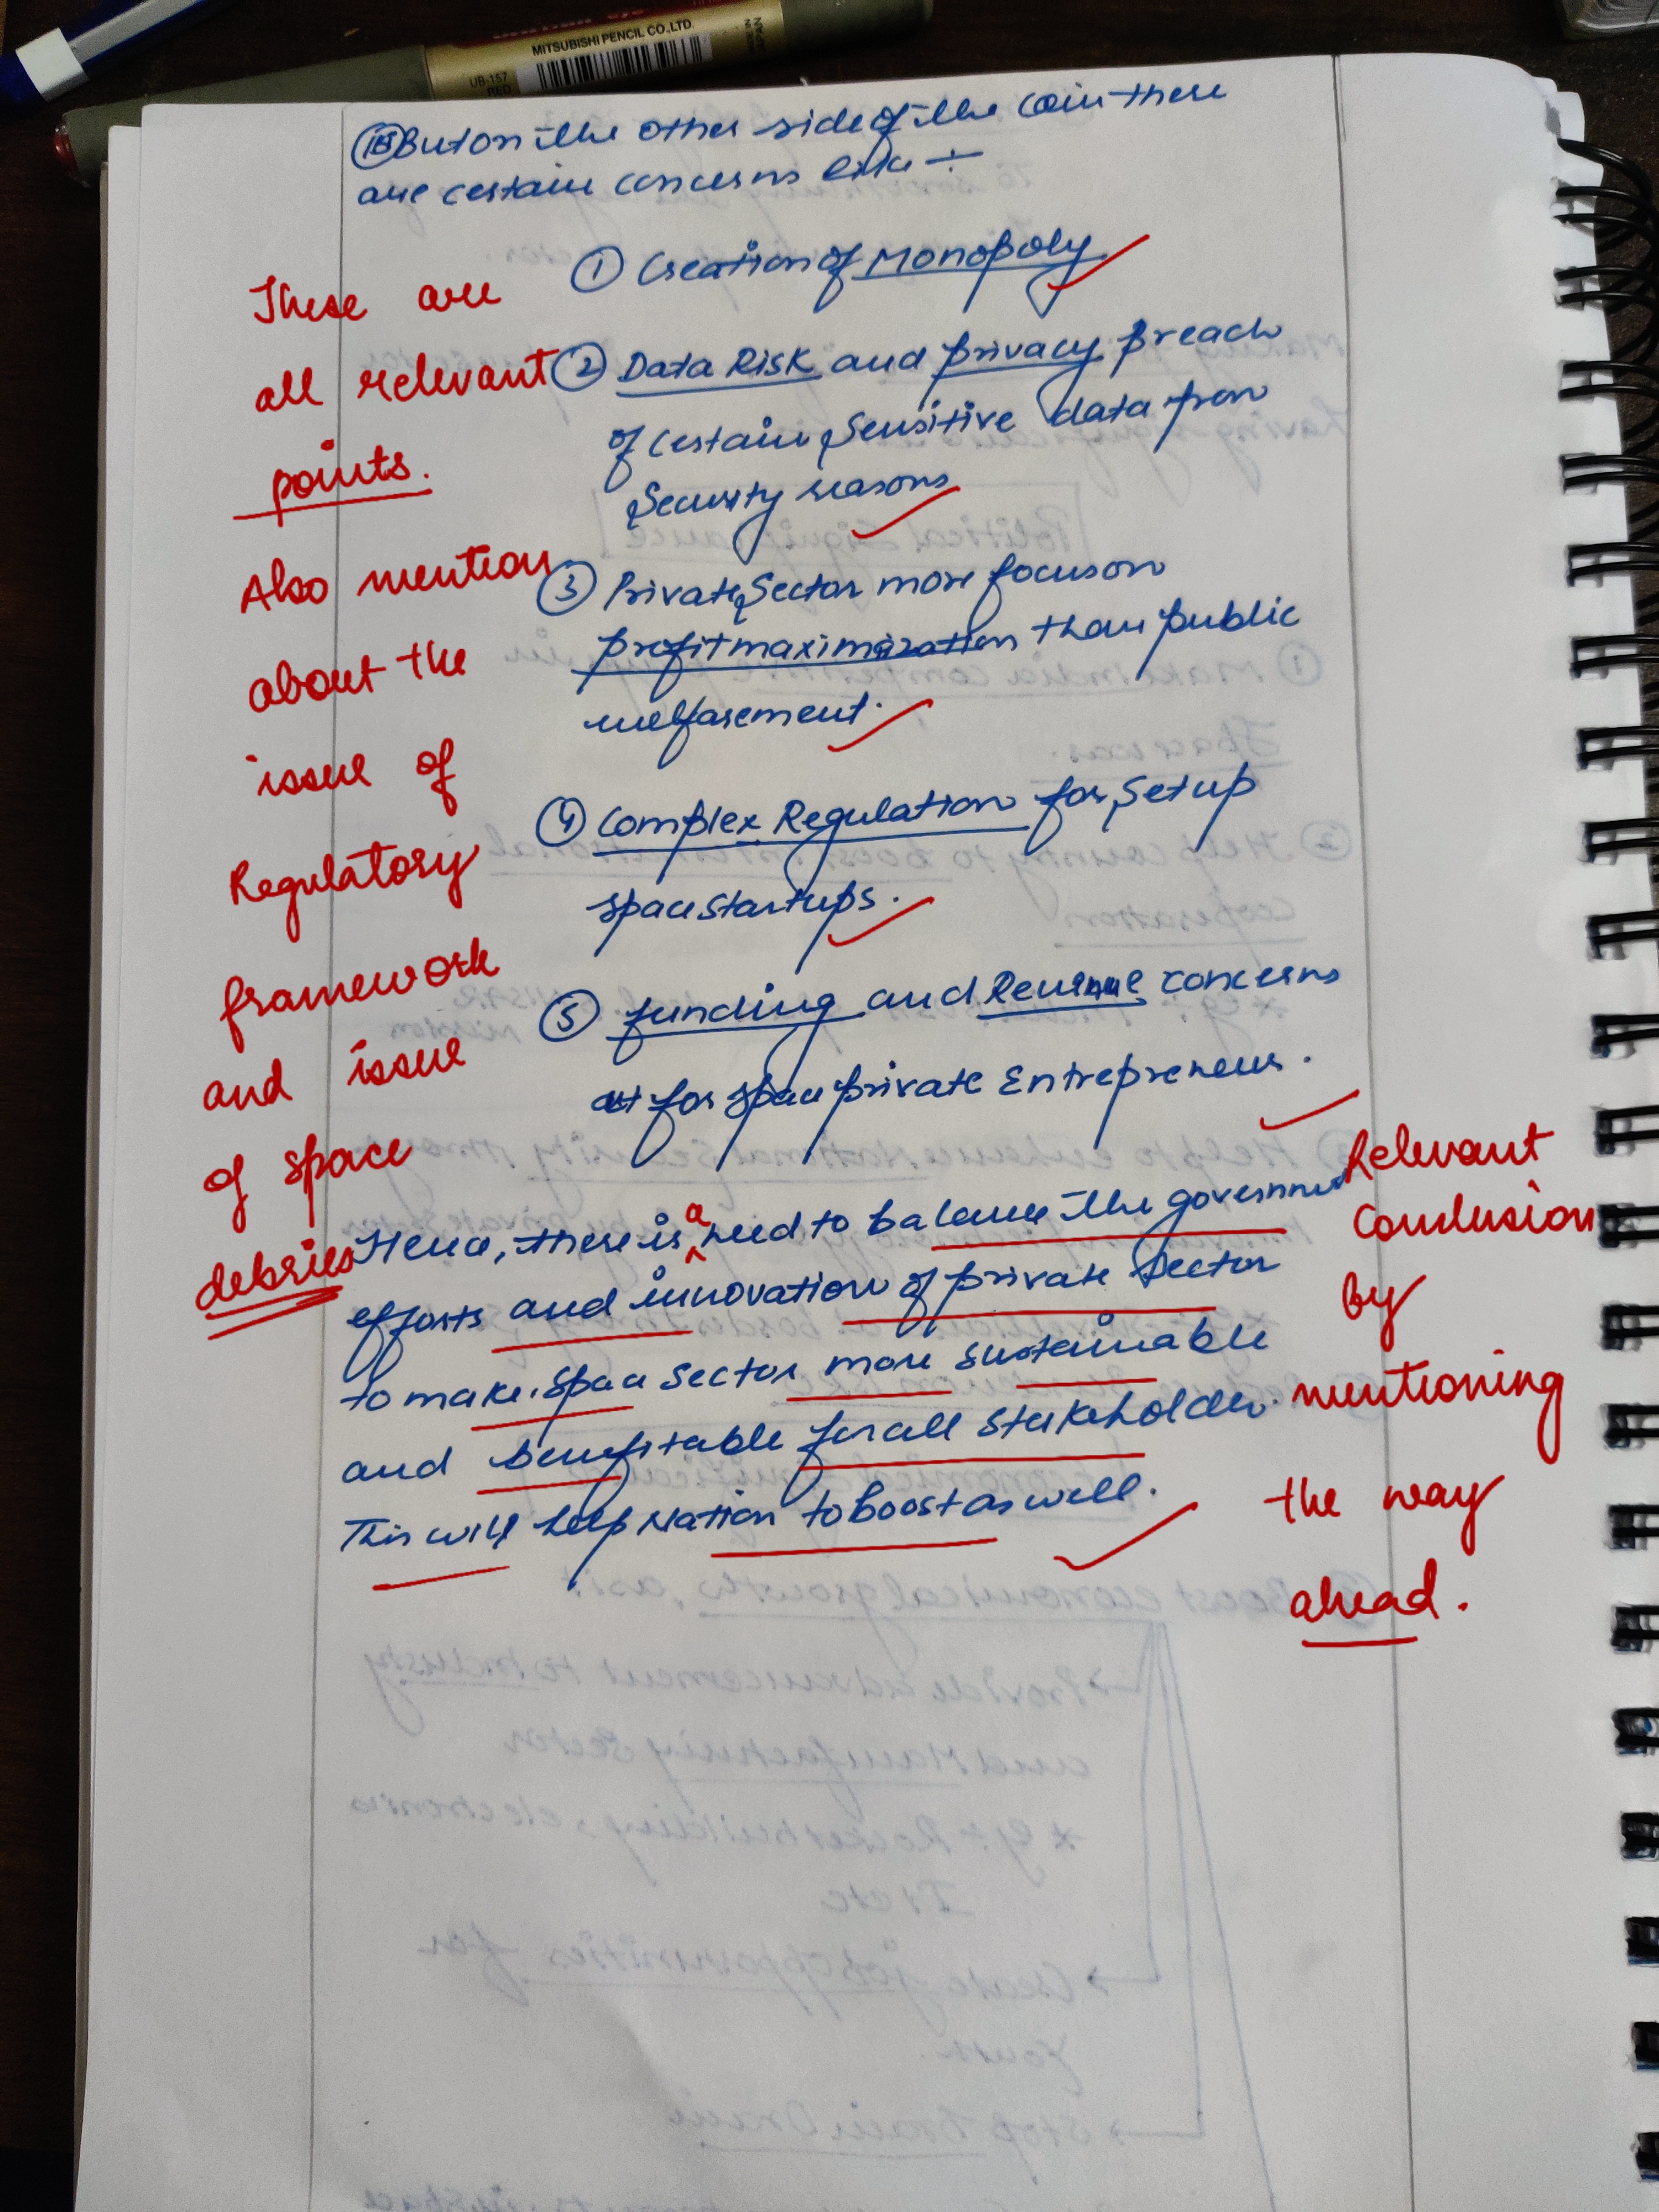 MITSUBISHI PENCIL CO.,LTD.
UB-157
RED
But on the other side of the coin there
are certain concerns like ÷
① Creation of Monopoly
② Data Risk and privacy breach
of certain Sensitive data from
Security reasons
③ Private Sector more focus on
profit maximization than public
welfarement.
④ Complex Regulation for Setup
space startups.
⑤ funding and Revenue concerns
for space private Entrepreneur.
Hence, there is a need to balance the government
efforts and innovation of private Sector
to make space sector more sustainable
and benefitable for all stakeholder.
This will help Nation to boost as well.
These are
all relevant
points.
Also mention
about the
issue of
Regulatory
framework
and issue
of space
debries
Relevant
Conclusion
by
mentioning
the way
ahead.